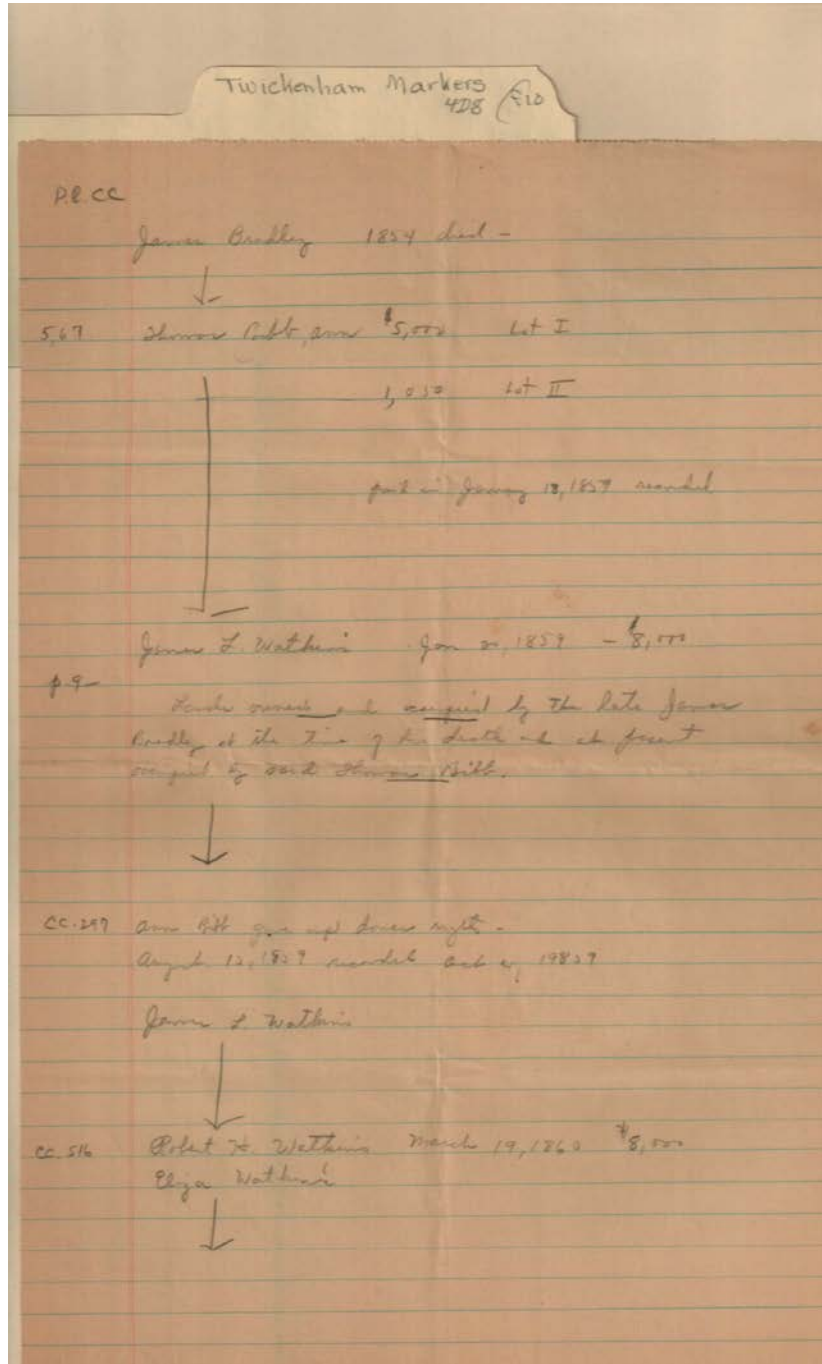 Twickenham Markers
4D8 F10
P.R. CC
James Bradley 1854 died -
5,67 Thomas Bibb, Ann $5,000 Lot I
1,050 Lot II
paid in January 18, 1859 recorded
James L. Watkins Jan 20, 1859 - $8,000
p. 9
Lands owned and occupied by the late James
Bradley at the Time of his death and at present
occupied by said Thomas Bibb.
CC. 297 Ann Bibb gave up dower rights -
August 12, 1859 recorded Oct 19859
James L Watkins
CC. 516 Robert H. Watkins March 19, 1860 $8,000
Eliza Watkins